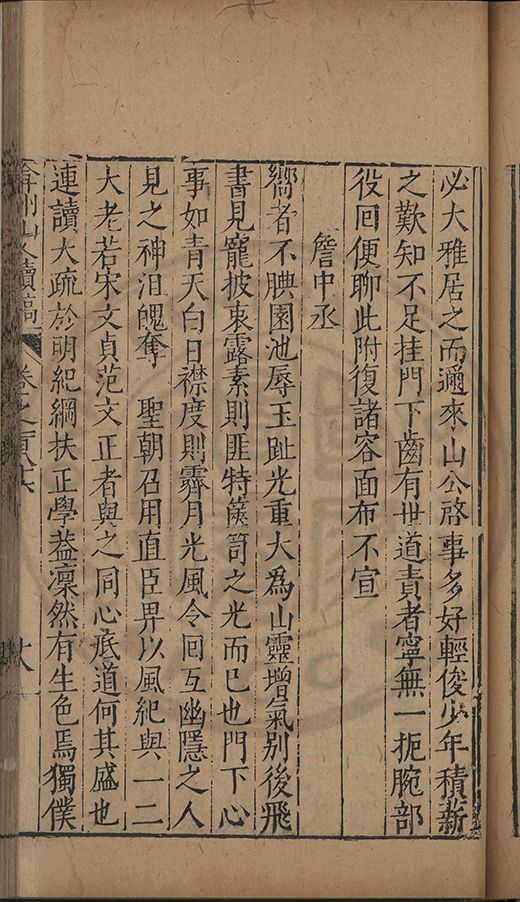 必大雅居之而邇來山公啓事多好輕俊少年積薪
之歎知不足挂門下齒有世道責者寧無一扼腕部
役回便聊此附復諸容面布不宣
詹中丞
嚮者不腆園池辱玉趾光重大爲山靈增氣别後飛
書見寵披衷露素則匪特篋笥之光而已也門下心
事如青天白日襟度則霽月光風令回互幽隱之人
見之神沮魄奪 聖朝召用直臣畀以風紀與一二
大老若宋文貞范文正者與之同心底道何其盛也
連讀大疏於明紀綱扶正學益凜然有生色焉獨僕
弇州山人續稿 卷之一百